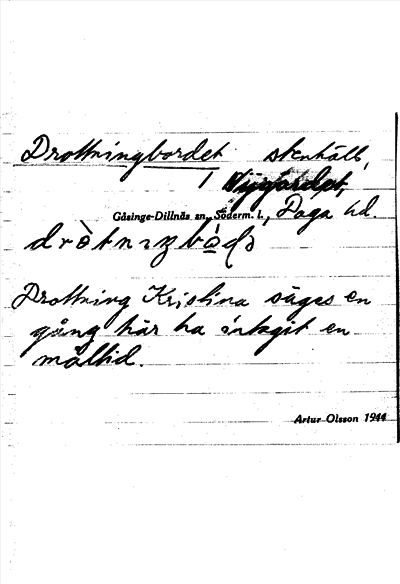 Drottningbordet stenhäll,
i Nygärdet,
Gåsinge-Dillnäs sn, Söderm. l., Daga hd.
Drottning Kristina säges en
gång här ha intagit en
måltid.
Artur Olsson 1944